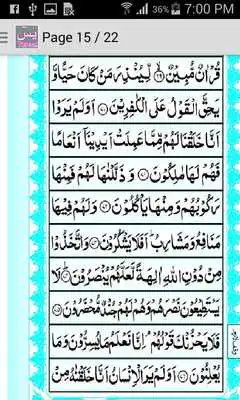 7:00 PM
يٰسٓ
Page 15 / 22
قُرْاٰنٌ مُّبِيْنٌ ۙ﴿۶۹﴾ لِّيُنْذِرَ مَنْ كَانَ حَيًّا وَّ
يَحِقَّ الْقَوْلُ عَلَى الْكٰفِرِيْنَ ﴿۷۰﴾ اَوَلَمْ يَرَوْا
اَنَّا خَلَقْنَا لَهُمْ مِّمَّا عَمِلَتْ اَيْدِيْنَاۤ اَنْعَامًا
فَهُمْ لَهَا مٰلِكُوْنَ ﴿۷۱﴾ وَ ذَلَّلْنٰهَا لَهُمْ فَمِنْهَا
رَكُوْبُهُمْ وَمِنْهَا يَاْكُلُوْنَ ﴿۷۲﴾ وَلَهُمْ فِيْهَا
مَنَافِعُ وَمَشَارِبُ ؕ اَفَلَا يَشْكُرُوْنَ ﴿۷۳﴾ وَاتَّخَذُوْا
مِنْ دُوْنِ اللّٰهِ اٰلِهَةً لَّعَلَّهُمْ يُنْصَرُوْنَ ؕ﴿۷۴﴾ لَا
يَسْتَطِيْعُوْنَ نَصْرَهُمْ وَهُمْ لَهُمْ جُنْدٌ مُّحْضَرُوْنَ ﴿۷۵﴾
فَلَا يَحْزُنْكَ قَوْلُهُمْ ۘ اِنَّا نَعْلَمُ مَا يُسِرُّوْنَ وَمَا
يُعْلِنُوْنَ ﴿۷۶﴾ اَوَلَمْ يَرَ الْاِنْسَانُ اَنَّا خَلَقْنٰهُ مِنْ
وقف لازم